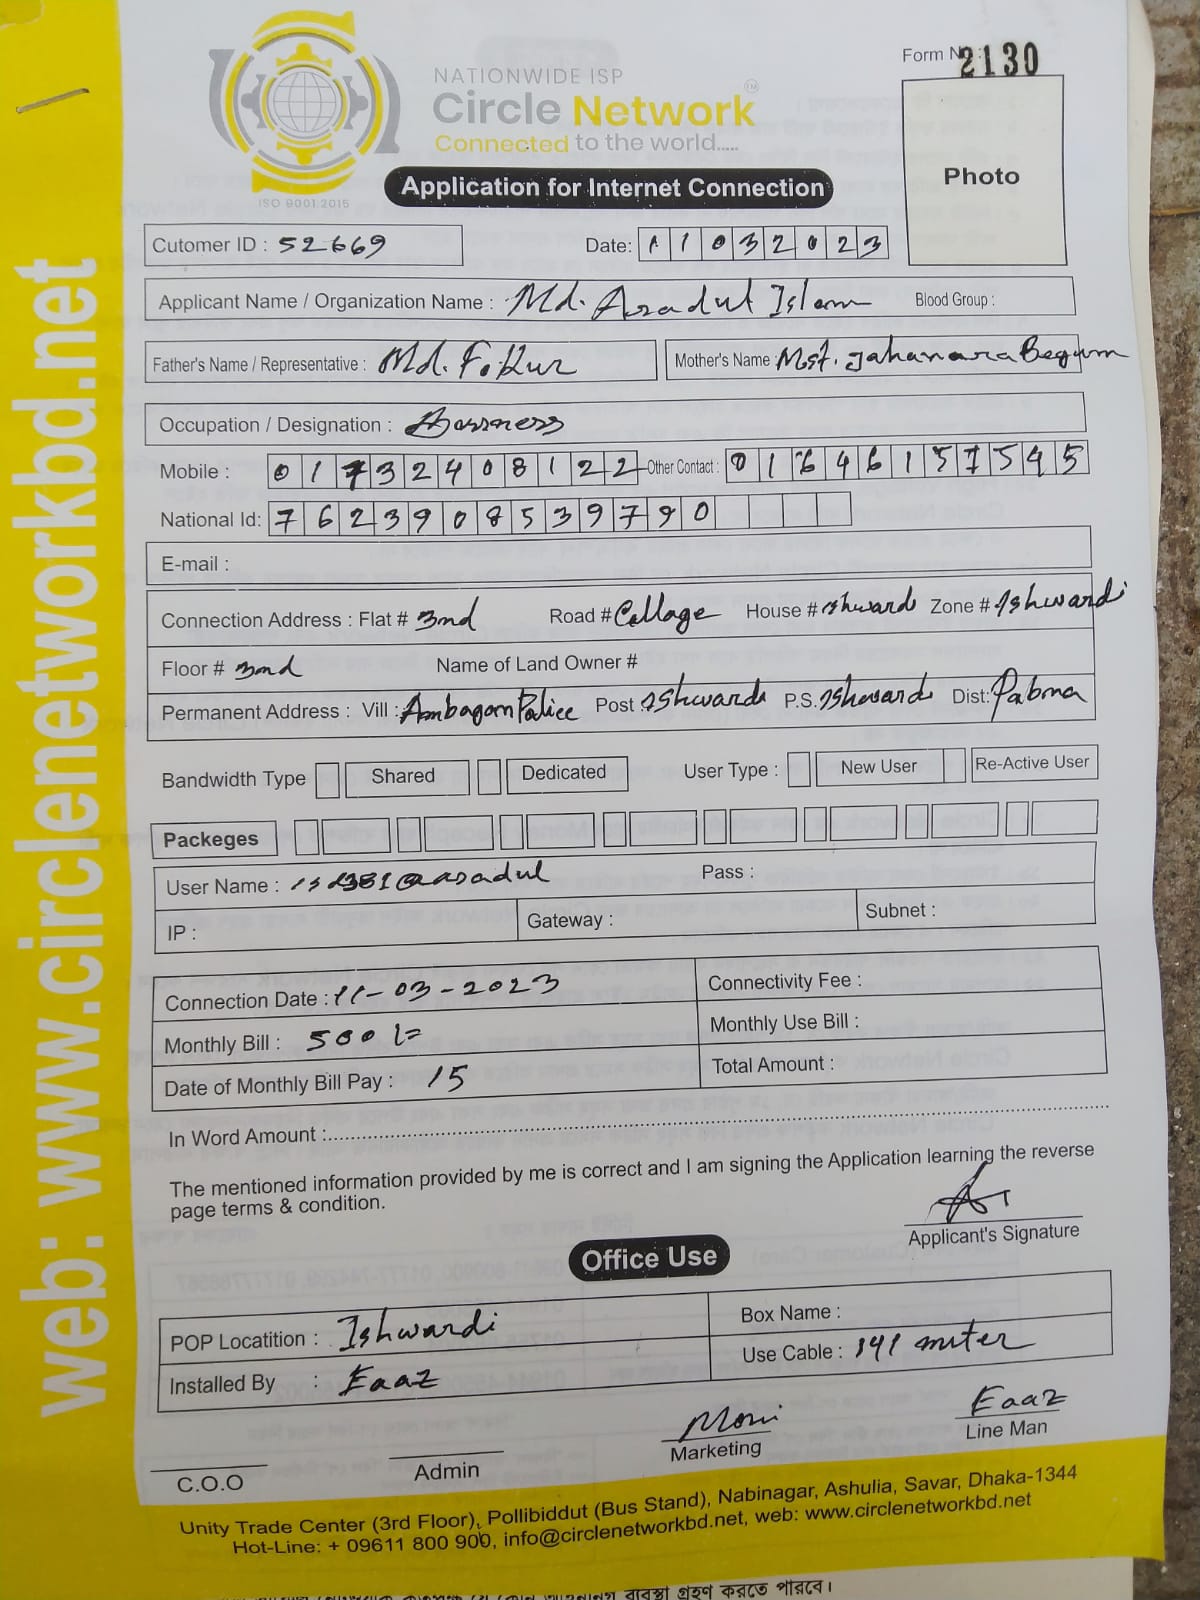 Form N 2130
NATIONWIDE ISP
Circle Network
Connected to the world.....
ISO 9001:2015
Application for Internet Connection
Photo
Cutomer ID : 52669 Date: 11032023
Applicant Name / Organization Name : Md. Asadul Islam Blood Group :
Father's Name / Representative : Md. Fokur Mother's Name : Mst. Jahanara Begum
Occupation / Designation :
Mobile : 01732408122 Other Contact : 01646157545
National Id: 7623908539790
E-mail :
Connection Address : Flat # 3nd Road # Collage House # Ishwardi Zone # Ishwardi
Floor # 3nd Name of Land Owner #
Permanent Address : Vill : Ambagan Palice Post Ishwardi P.S. Ishwardi Dist: Pabna
Bandwidth Type Shared Dedicated User Type : New User Re-Active User
Packeges
User Name : @asadul Pass :
IP : Gateway : Subnet :
Connection Date : 11-03-2023 Connectivity Fee :
Monthly Bill : 500/= Monthly Use Bill :
Date of Monthly Bill Pay : 15 Total Amount :
In Word Amount :
The mentioned information provided by me is correct and I am signing the Application learning the reverse
page terms & condition.
Applicant's Signature
Office Use
POP Locatition : Ishwardi Box Name :
Installed By : Eaaz Use Cable : 141 miter
Moni Eaaz
C.O.O Admin Marketing Line Man
Unity Trade Center (3rd Floor), Pollibiddut (Bus Stand), Nabinagar, Ashulia, Savar, Dhaka-1344
Hot-Line: + 09611 800 900, info@circlenetworkbd.net, web: www.circlenetworkbd.net
web: www.circlenetworkbd.net
ব্যবস্থা গ্রহণ করতে পারবে।